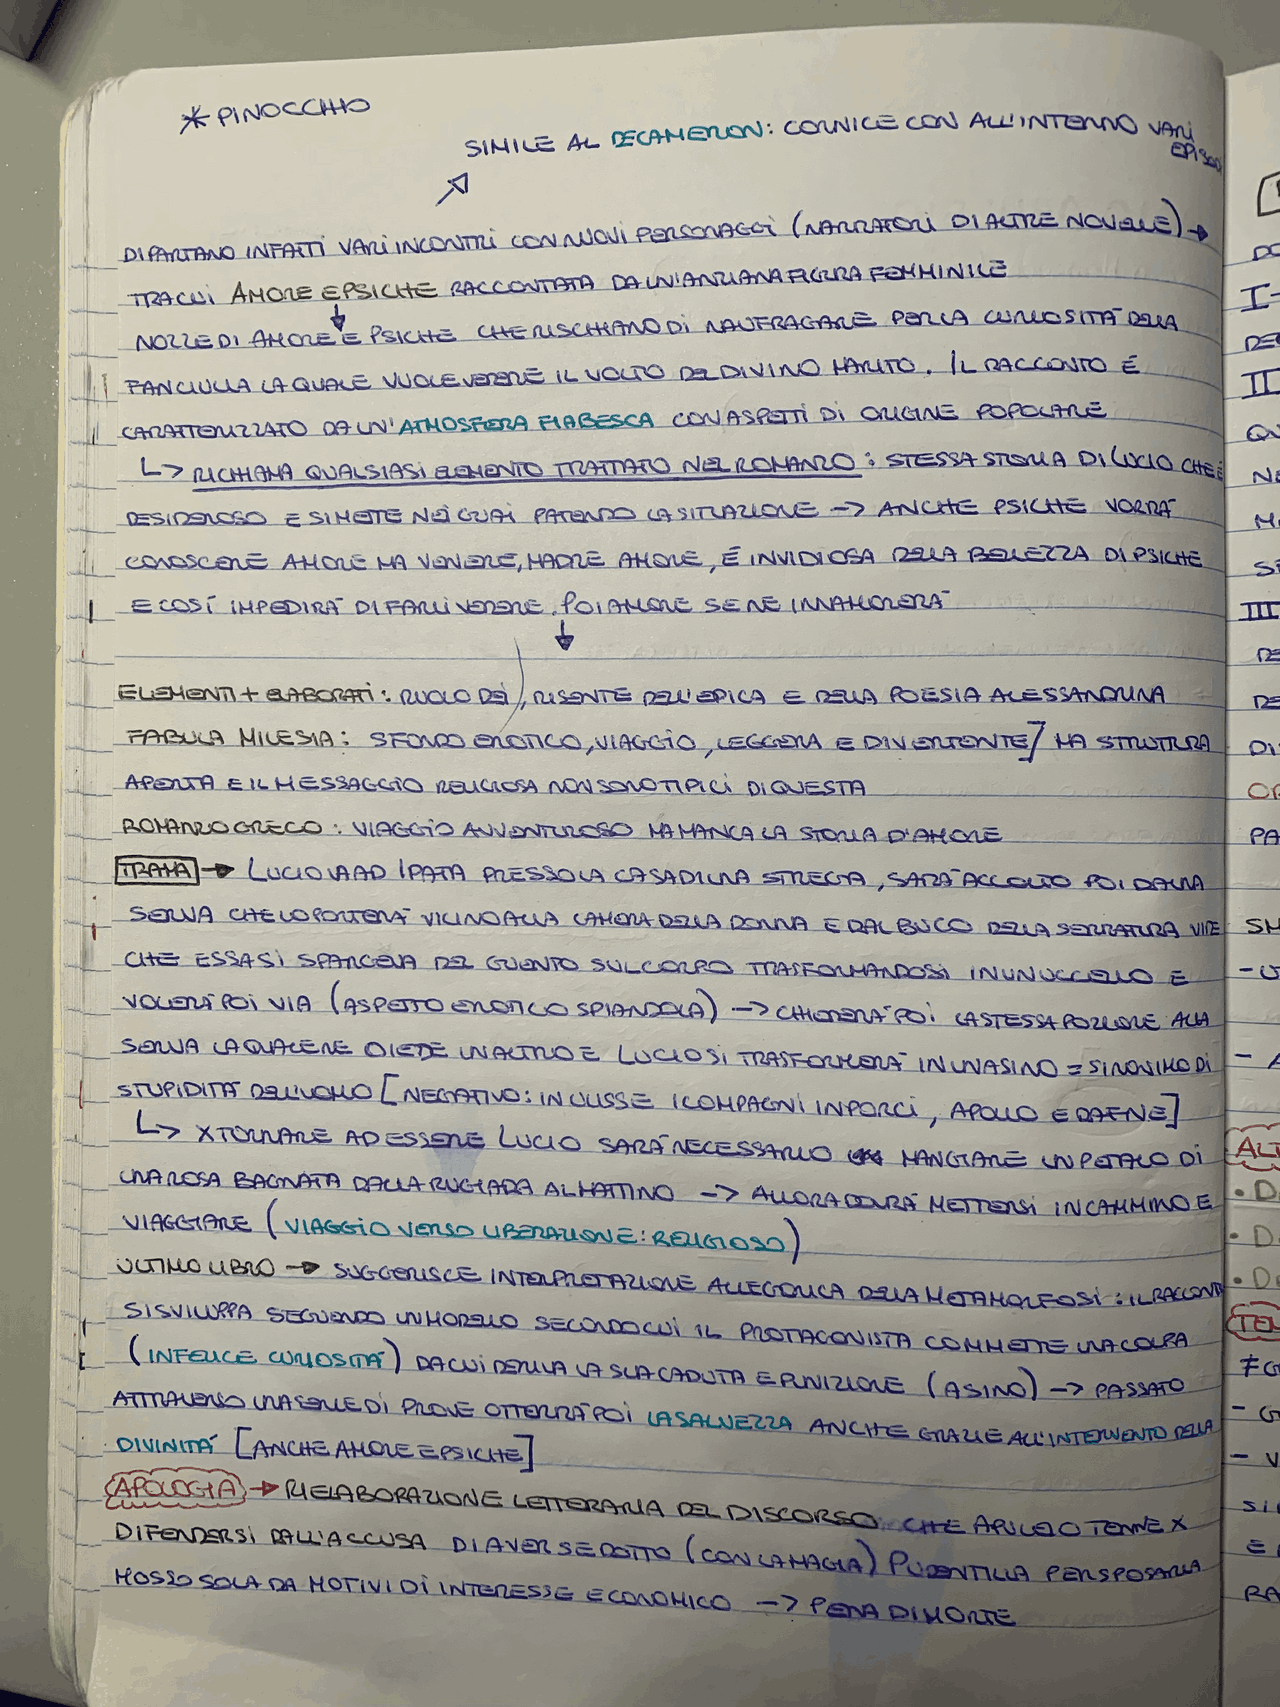 * PINOCCHIO
SIMILE AL DECAMERON: CORNICE CON ALL'INTERNO VARI
EPISODI
DIPARTANO INFATTI VARI INCONTRI CON NUOVI PERSONAGGI (NARRATORI DI ALTRE NOVELLE) →
TRA CUI AMORE E PSICHE RACCONTATA DA UN'ANZIANA FIGURA FEMMINILE
NOZZE DI AMORE E PSICHE CHE RISCHIANO DI NAUFRAGARE PER LA CURIOSITÀ DELLA
FANCIULLA LA QUALE VUOLE VEDERE IL VOLTO DEL DIVINO MARITO. IL RACCONTO È
CARATTERIZZATO DA UN'ATMOSFERA FIABESCA CON ASPETTI DI ORIGINE POPOLARE
↳ RICHIAMA QUALSIASI ELEMENTO TRATTATO NEL ROMANZO: STESSA STORIA DI LUCIO CHE È
DESIDEROSO E SI METTE NEI GUAI PATENDO LA SITUAZIONE → ANCHE PSICHE VORRÀ
CONOSCERE AMORE MA VENERE, MADRE AMORE, È INVIDIOSA DELLA BELLEZZA DI PSICHE
E COSÌ IMPEDIRÀ DI FARLI VEDERE. POI AMORE SE NE INNAMORERÀ
ELEMENTI + ELABORATI: RUOLO DEI, RISENTE DELL'EPICA E DELLA POESIA ALESSANDRINA
FABULA MILESIA: SFONDO EROTICO, VIAGGIO, LEGGERA E DIVERTENTE] MA STRUTTURA
APERTA E IL MESSAGGIO RELIGIOSA NON SONO TIPICI DI QUESTA
ROMANZO GRECO: VIAGGIO AVVENTUROSO MA MANCA LA STORIA D'AMORE
TRAMA → LUCIO VA AD IPATA PRESSO LA CASA DI UNA STREGA, SARÀ ACCOLTO POI DALLA
SERVA CHE LO PORTERÀ VICINO ALLA CAMERA DELLA DONNA E DAL BUCO DELLA SERRATURA VIDE
CHE ESSA SI SPARGEVA DEL GUENTO SUL CORPO TRASFORMANDOSI IN UN UCCELLO E
VOLERÀ POI VIA (ASPETTO EROTICO SPIANDOLA) → CHIEDERÀ POI LA STESSA POZIONE ALLA
SERVA LA QUALE NE DIEDE UN ALTRO E LUCIO SI TRASFORMERÀ IN UN ASINO = SINONIMO DI
STUPIDITÀ DELL'UOMO [NEGATIVO: IN ULISSE I COMPAGNI IN PORCI, APOLLO E DAFNE]
↳ X TORNARE AD ESSERE LUCIO SARÀ NECESSARIO MANGIARE UN PETALO DI
UNA ROSA BAGNATA DALLA RUGIADA AL MATTINO → ALLORA DOVRÀ METTERSI IN CAMMINO E
VIAGGIARE (VIAGGIO VERSO LIBERAZIONE: RELIGIOSO)
ULTIMO LIBRO → SUGGERISCE INTERPRETAZIONE ALLEGORICA DELLA METAMORFOSI: IL RACCONTO
SI SVILUPPA SEGUENDO UN MODELLO SECONDO CUI IL PROTAGONISTA COMMETTE UNA COLPA
(INFELICE CURIOSITÀ) DA CUI DERIVA LA SUA CADUTA E PUNIZIONE (ASINO) → PASSATO
ATTRAVERSO UNA SERIE DI PROVE OTTERRÀ POI LA SALVEZZA ANCHE GRAZIE ALL'INTERVENTO DELLA
DIVINITÀ [ANCHE AMORE E PSICHE]
APOLOGIA → RIELABORAZIONE LETTERARIA DEL DISCORSO CHE APULEIO TENNE X
DIFENDERSI DALL'ACCUSA DI AVER SEDOTTO (CON LA MAGIA) PUDENTILLA PER SPOSARLA
MOSSO SOLA DA MOTIVI DI INTERESSE ECONOMICO → PENA DI MORTE